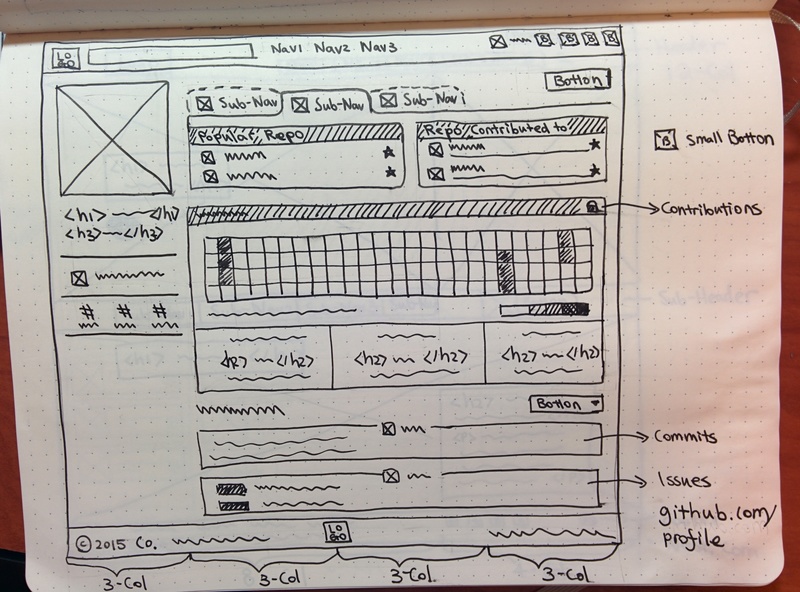 LOGO Nav1 Nav2 Nav3 B B B B
Botton
Sub-Nav Sub-Nav Sub-Nav
Popular Repo Repo Contributed to
B Small Botton
<h1> </h1>
<h3> </h3>
Contributions
# # #
<h2> </h2> <h2> </h2> <h2> </h2>
Botton
Commits
Issues
github.com/
profile
© 2015 Co. LOGO
3-Col 3-Col 3-Col 3-Col